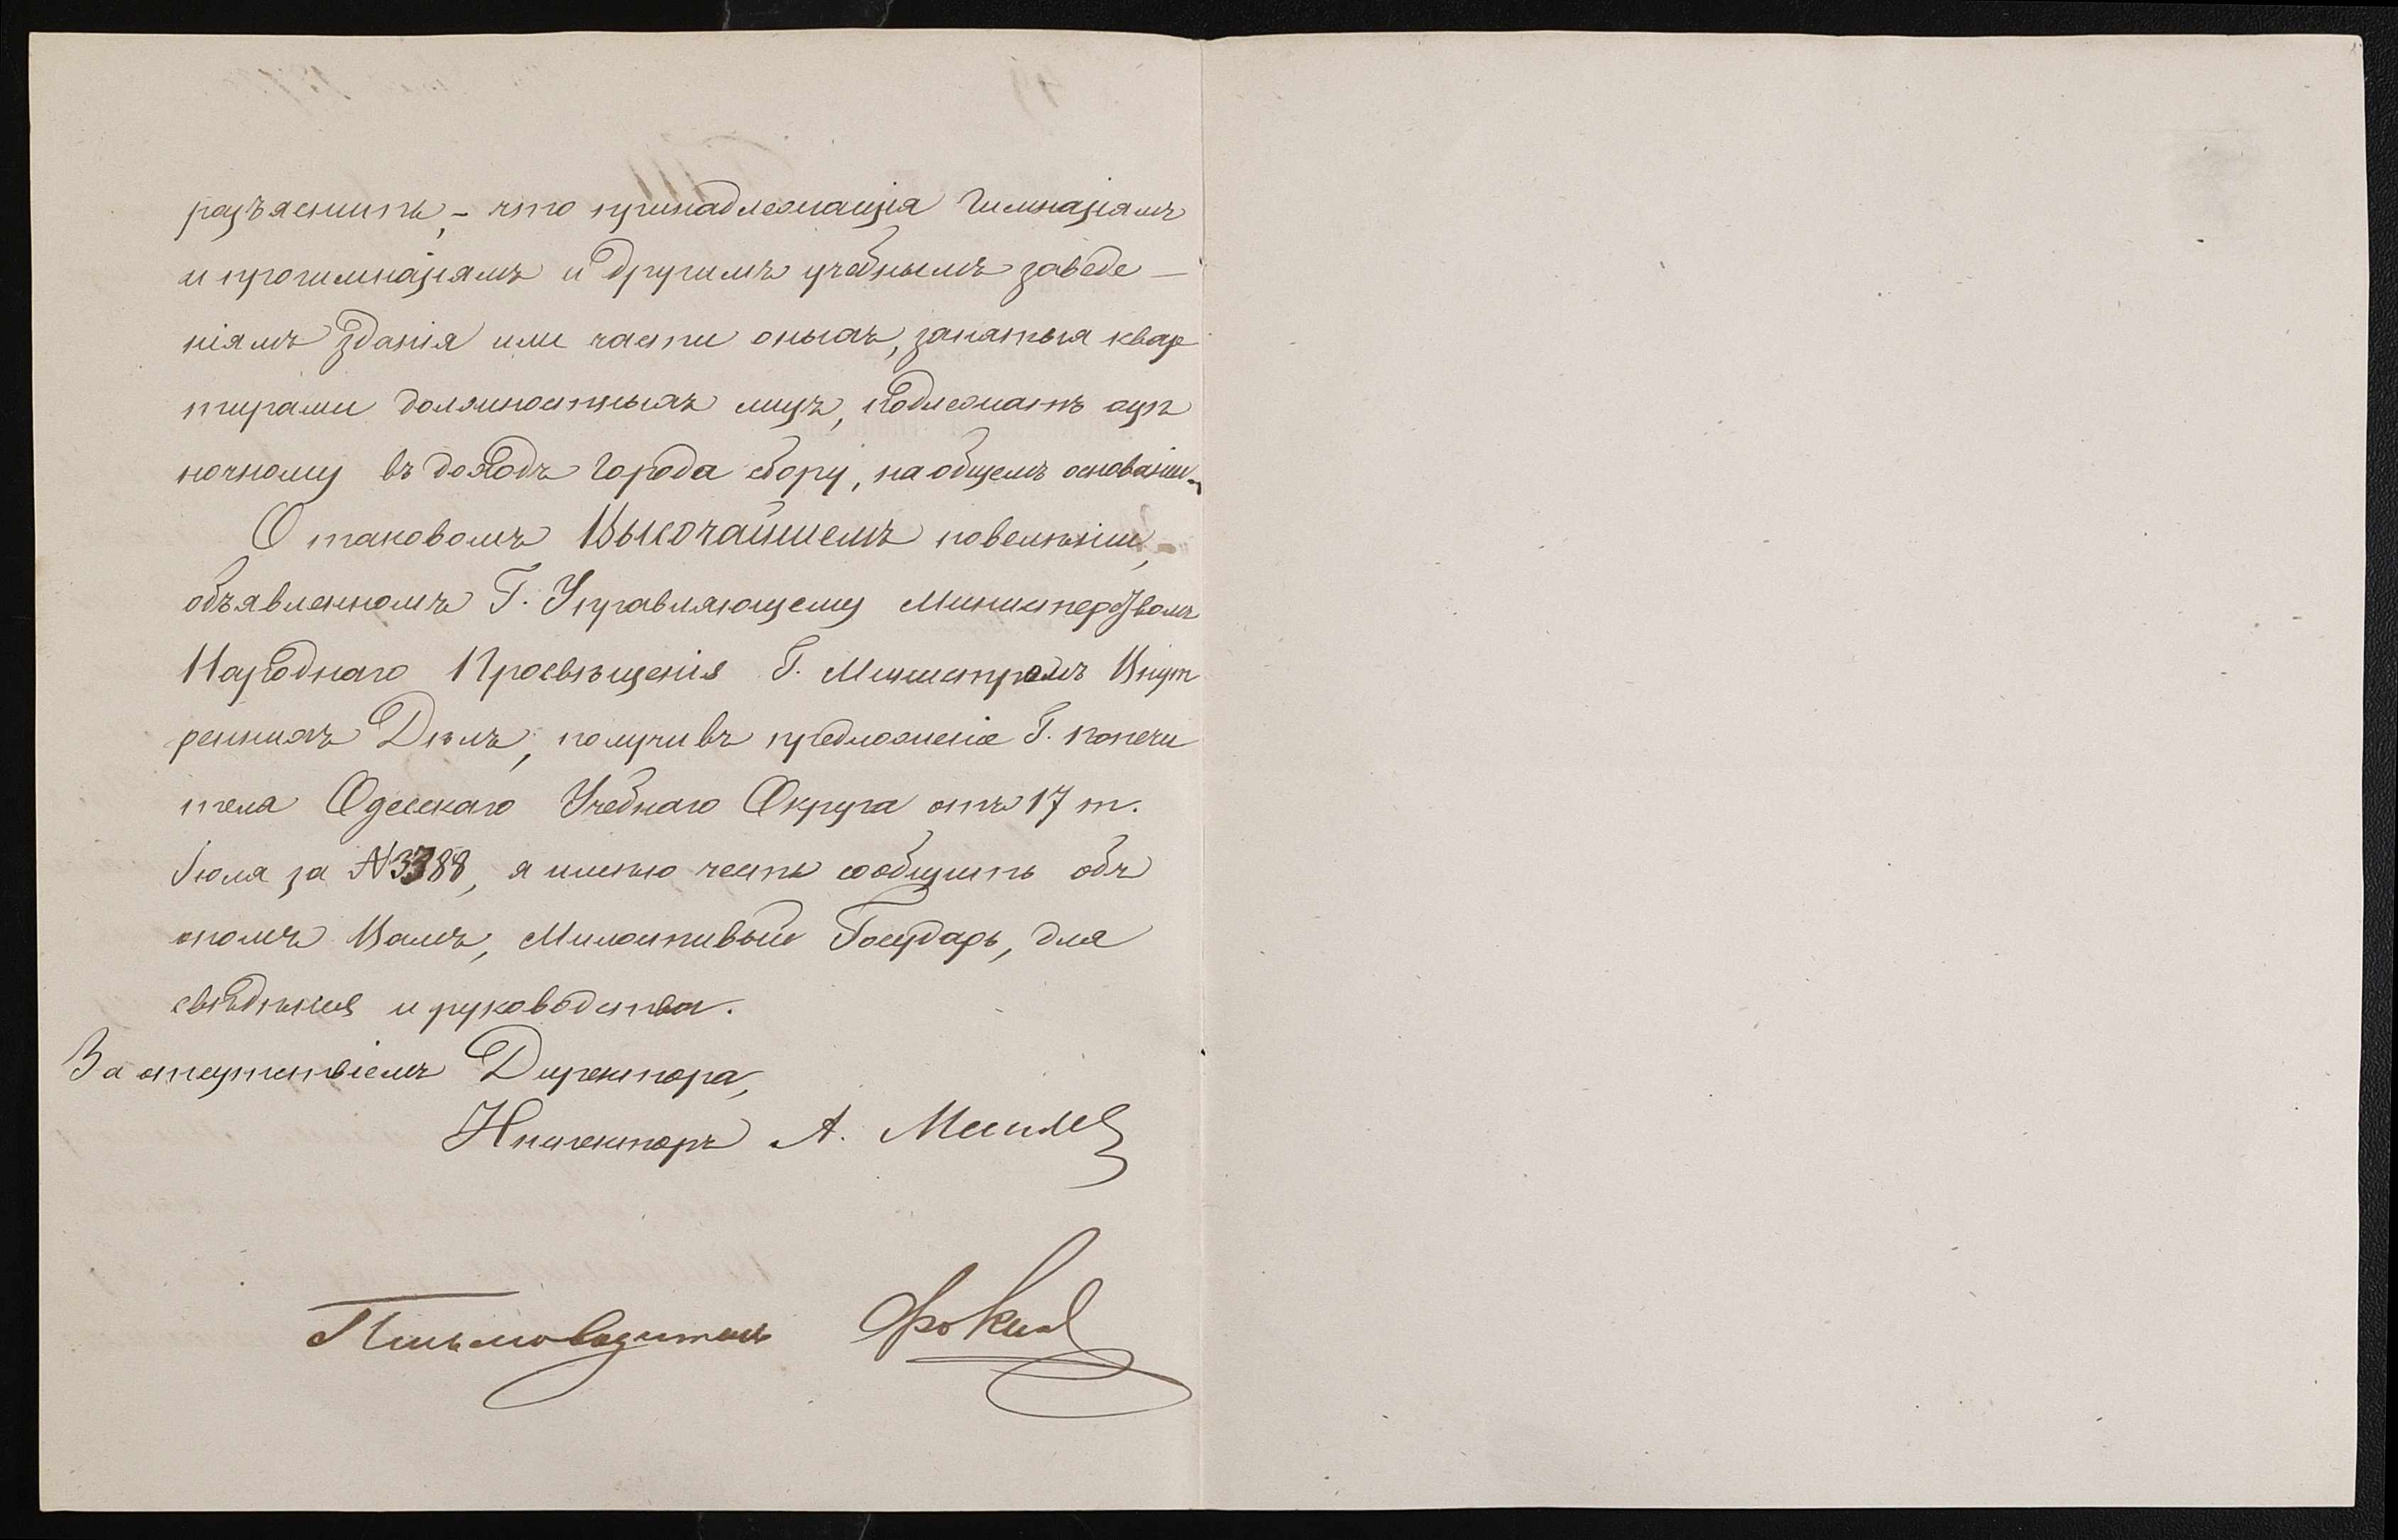 разъяснить, - что принадлежащія гимназіямъ
и прогимназіямъ и другимъ учебнымъ заведе-
ніямъ зданія или части оныхъ, занятыя квар
тирами должностныхъ лицъ, подлежатъ оцѣ
ночному въ доходъ города сбору, на общемъ основаніи.
О таковомъ Высочайшемъ повелѣніи,
объявленномъ Г. Управляющему Министерствомъ
Народнаго Просвѣщенія Г. Министромъ Внут
реннихъ Дѣлъ, получивъ предложеніе Г. Попечи
теля Одесскаго Учебнаго Округа отъ 17 т.
Іюля за №3388, я имѣю честь сообщить объ
этомъ Вамъ, Милостивый Государь, для
свѣдѣнія и руководства.
За отсутствіемъ Директора,
Инспекторъ А.
Письмоводитель Фокинъ